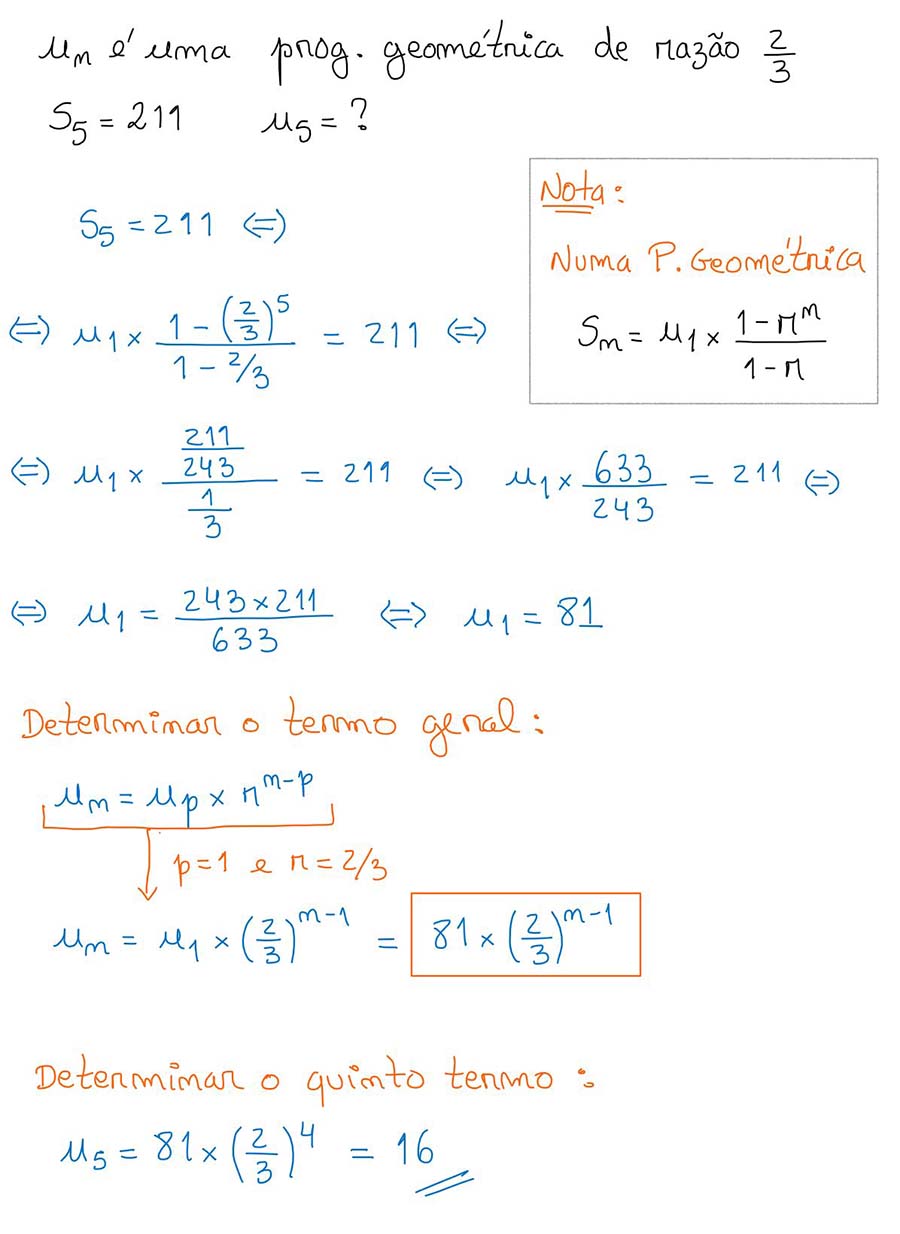 uₙ é uma prog. geométrica de razão 2/3
S₅ = 211 u₅ = ?
Nota:
Numa P. Geométrica
Sₙ = u₁ × (1 - rⁿ)/(1 - r)
S₅ = 211 (=)
(=) u₁ × (1 - (2/3)⁵)/(1 - 2/3) = 211 (=)
(=) u₁ × (211/243)/(1/3) = 211 (=) u₁ × 633/243 = 211 (=)
(=) u₁ = (243 × 211)/633 (=) u₁ = 81
Determinar o termo geral:
uₙ = uₚ × rⁿ⁻ᵖ
p = 1 e r = 2/3
uₙ = u₁ × (2/3)ⁿ⁻¹ = 81 × (2/3)ⁿ⁻¹
Determinar o quinto termo:
u₅ = 81 × (2/3)⁴ = 16